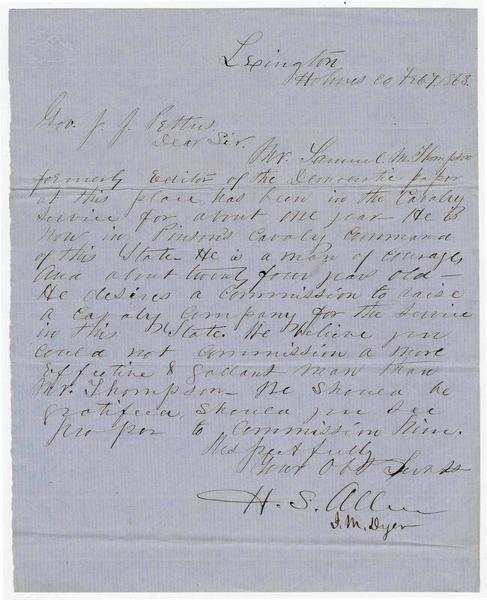 Lexington
Holmes Co Feb 7, 1863.
Gov. J. J. Pettus,
Dear Sir.
Mr. Samuel M. Thompson
formerly Editor of the Democratic paper
at this place has been in the Cavalry
Service for about one year He is
now in Pinson's Cavalry Command
of this State He is a man of courage,
and about twenty four years old —
He desires a Commission to raise
a cavalry company for the service
in this State. We believe you
could not commission a more
effective & gallant man than
Mr. Thompson — We should be
gratified, should you see
proper to commission him.
Respectfully
Your Obt Servts
H. S. Allen
J. M. Dyer